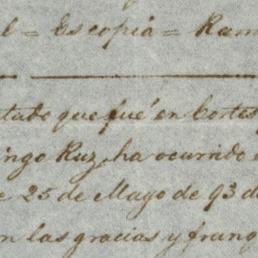 l = Es copia = Ram
tado que fué en Cortes
ingo Ruz, ha ocurrido
e 25 de Mayo de 93 d
n las gracias y franq